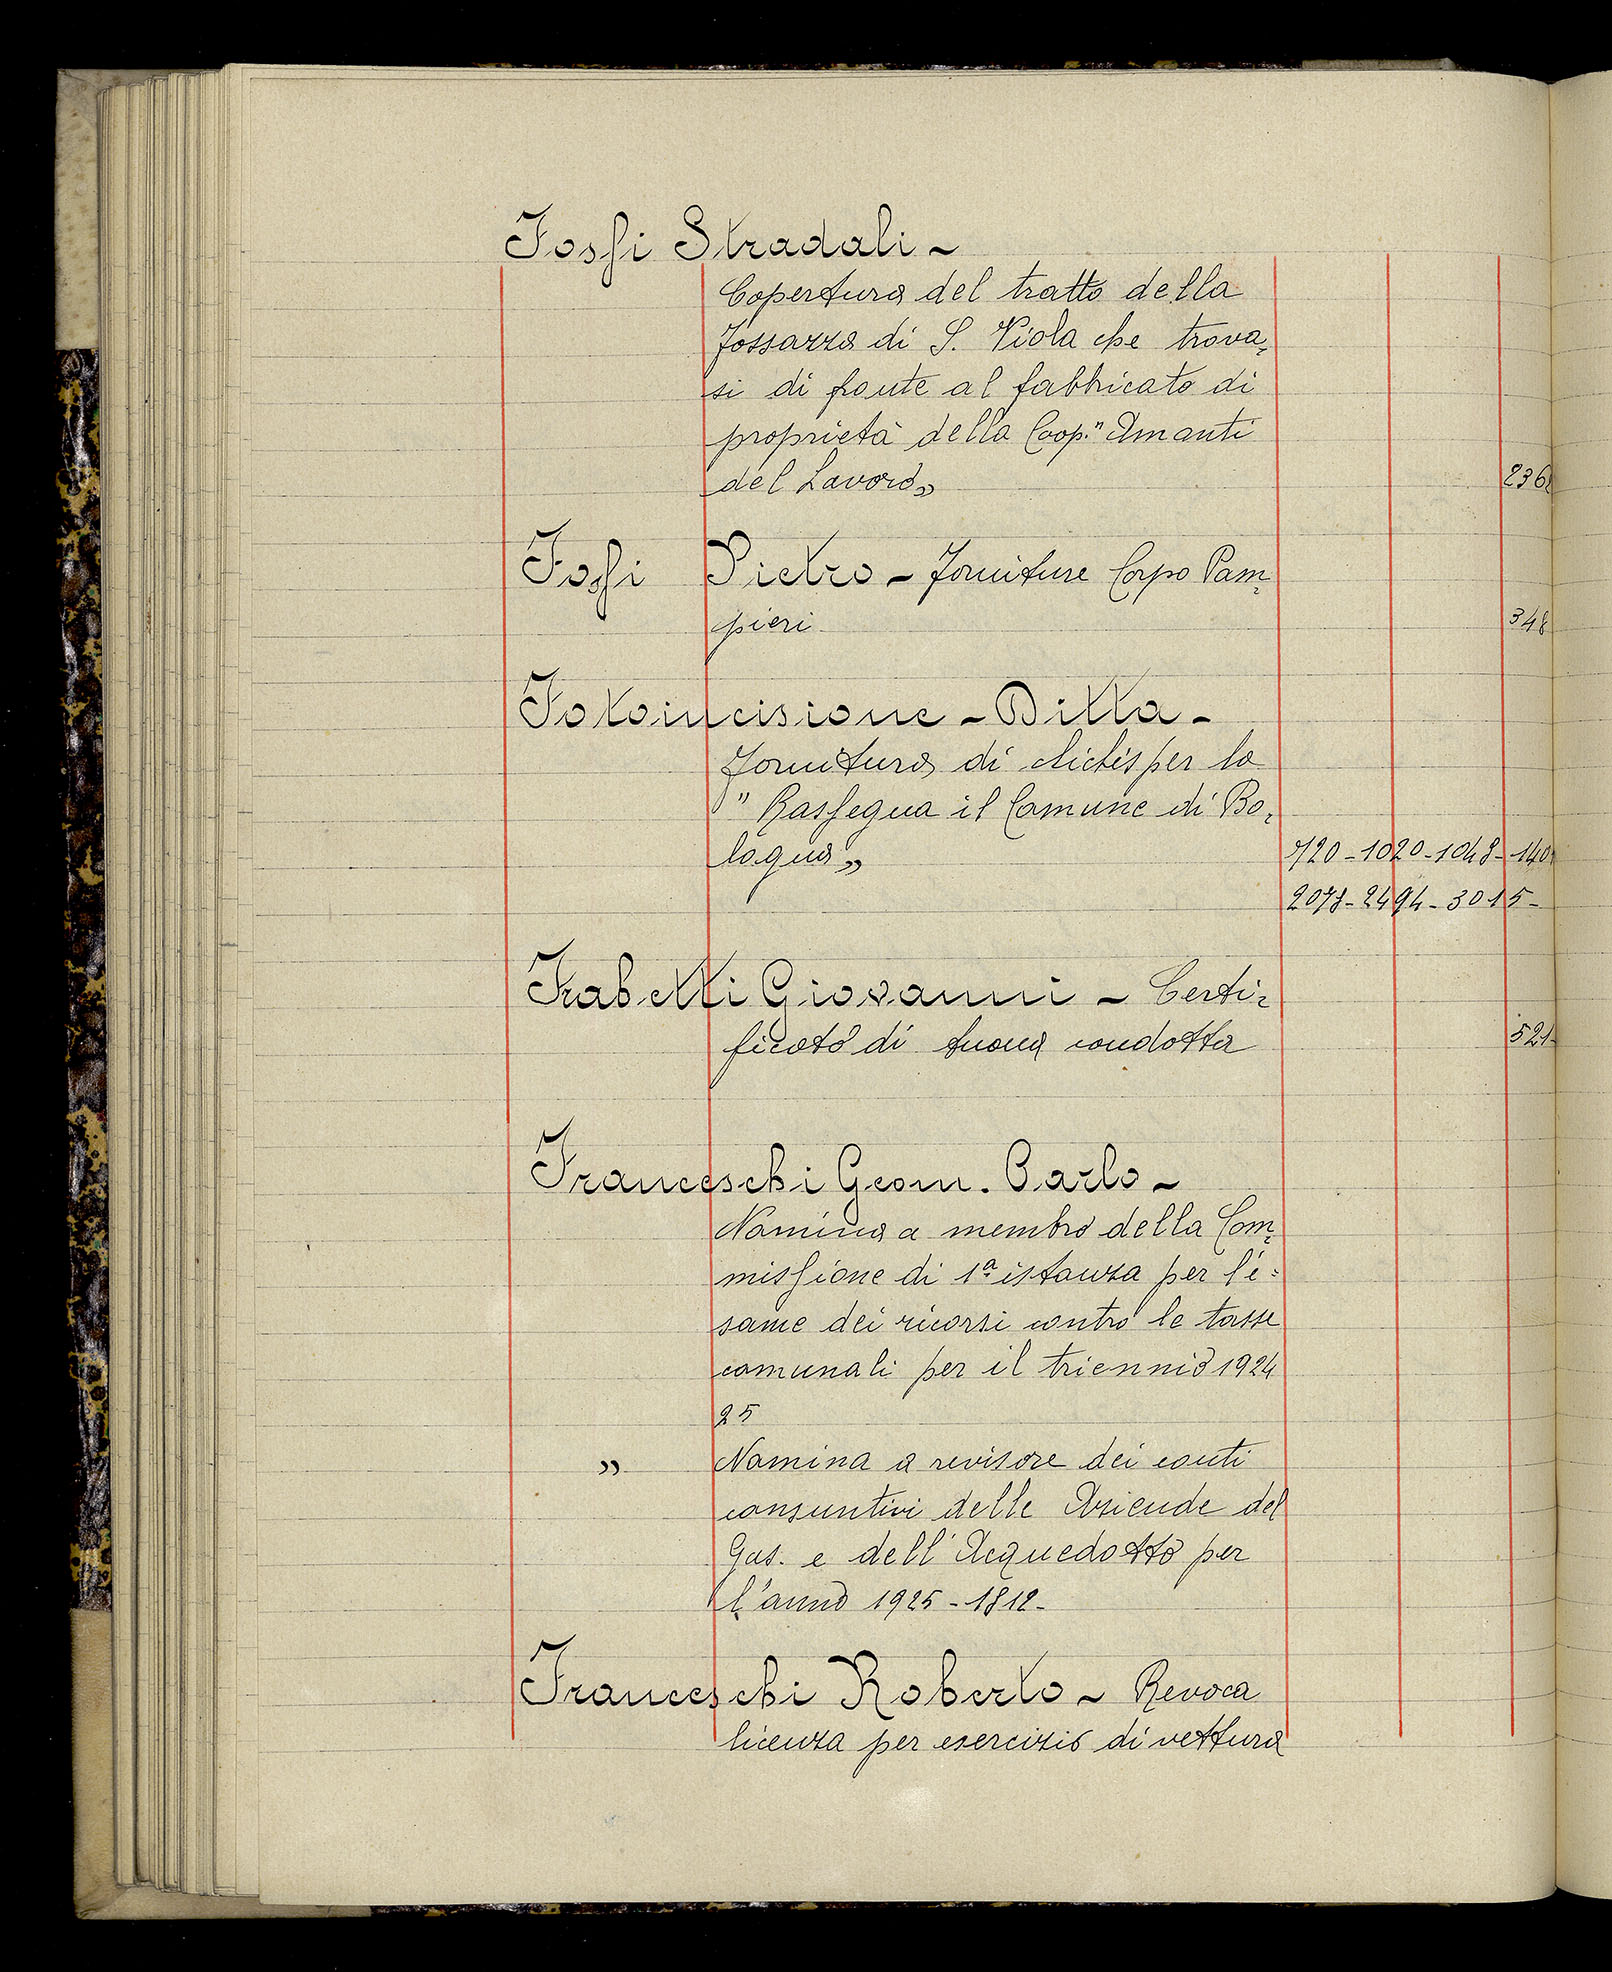 Fossi Stradali -
Copertura del tratto della
fossazza di S. Viola che trova,
si di fronte al fabbricato di
proprietà della Coop." Amanti
del Lavoro„ 236
Fossi Pietro - Forniture Corpo Pom,
pieri 348
Fotoincisione - Ditta -
Fornitura di clichès per la
" Rassegna il Comune di Bo,
logna„ 720-1020-1048-140
2078-2494-3015-
Frabetti Giovanni - Certi,
ficato di buona condotta 521
Franceschi Geom. Carlo -
Nomina a membro della Com,
missione di 1ª istanza per l'e=
same dei ricorsi contro le tasse
comunali per il triennio 1924
25
„ Nomina a revisore dei conti
consuntivi delle Aziende del
Gas. e dell'Acquedotto per
l'anno 1925-1812-
Franceschi Roberto - Revoca
licenza per esercizio di vettura